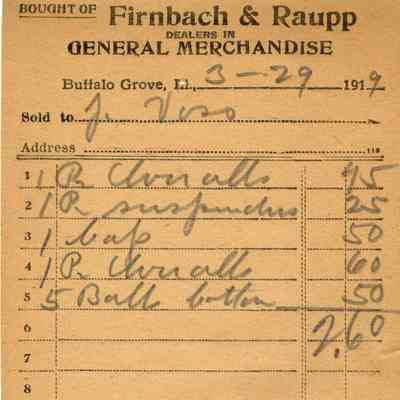 BOUGHT OF Firnbach & Raupp
DEALERS IN
GENERAL MERCHANDISE
Buffalo Grove, Ill., 3-29 1919
Sold to J. Voss
Address 118
1 1 Pr Overalls 75
2 1 Pr suspenders 25
3 1 Cap 50
4 1 Pr. Overalls 60
5 5 Balls cotton 50
6 2.60
7
8